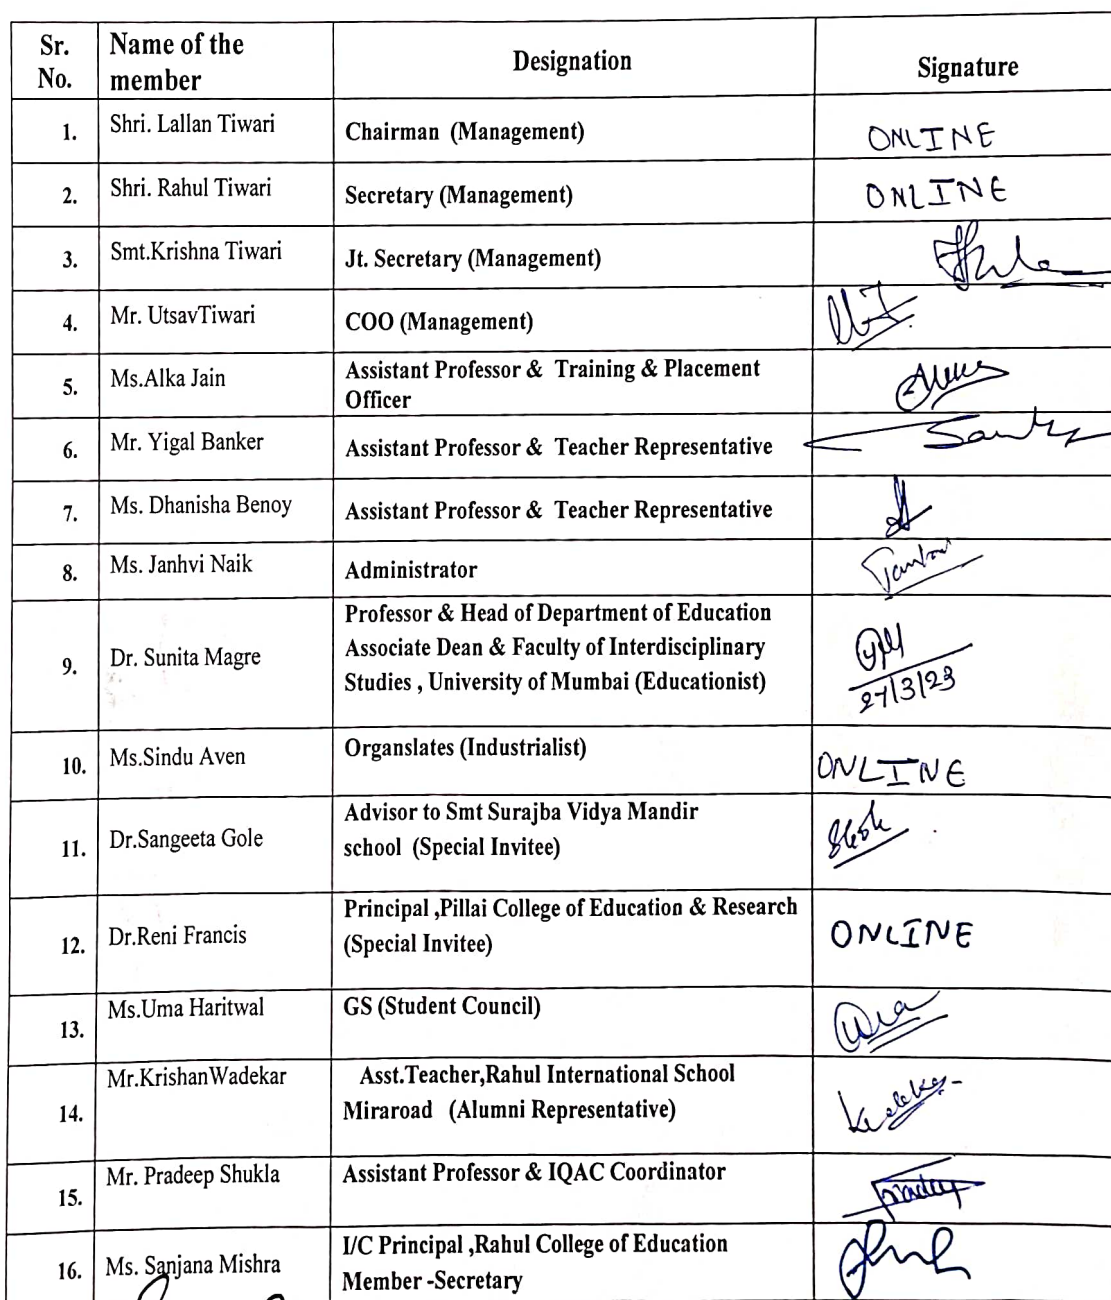 Sr. No. Name of the member Designation Signature
1. Shri. Lallan Tiwari Chairman (Management) ONLINE
2. Shri. Rahul Tiwari Secretary (Management) ONLINE
3. Smt.Krishna Tiwari Jt. Secretary (Management)
4. Mr. UtsavTiwari COO (Management)
5. Ms.Alka Jain Assistant Professor & Training & Placement
Officer
6. Mr. Yigal Banker Assistant Professor & Teacher Representative
7. Ms. Dhanisha Benoy Assistant Professor & Teacher Representative
8. Ms. Janhvi Naik Administrator
9. Dr. Sunita Magre Professor & Head of Department of Education
Associate Dean & Faculty of Interdisciplinary
Studies , University of Mumbai (Educationist)
27/3/23
10. Ms.Sindu Aven Organslates (Industrialist) ONLINE
11. Dr.Sangeeta Gole Advisor to Smt Surajba Vidya Mandir
school (Special Invitee)
12. Dr.Reni Francis Principal ,Pillai College of Education & Research
(Special Invitee) ONLINE
13. Ms.Uma Haritwal GS (Student Council)
14. Mr.KrishanWadekar Asst.Teacher,Rahul International School
Miraroad (Alumni Representative)
15. Mr. Pradeep Shukla Assistant Professor & IQAC Coordinator
16. Ms. Sanjana Mishra I/C Principal ,Rahul College of Education
Member -Secretary